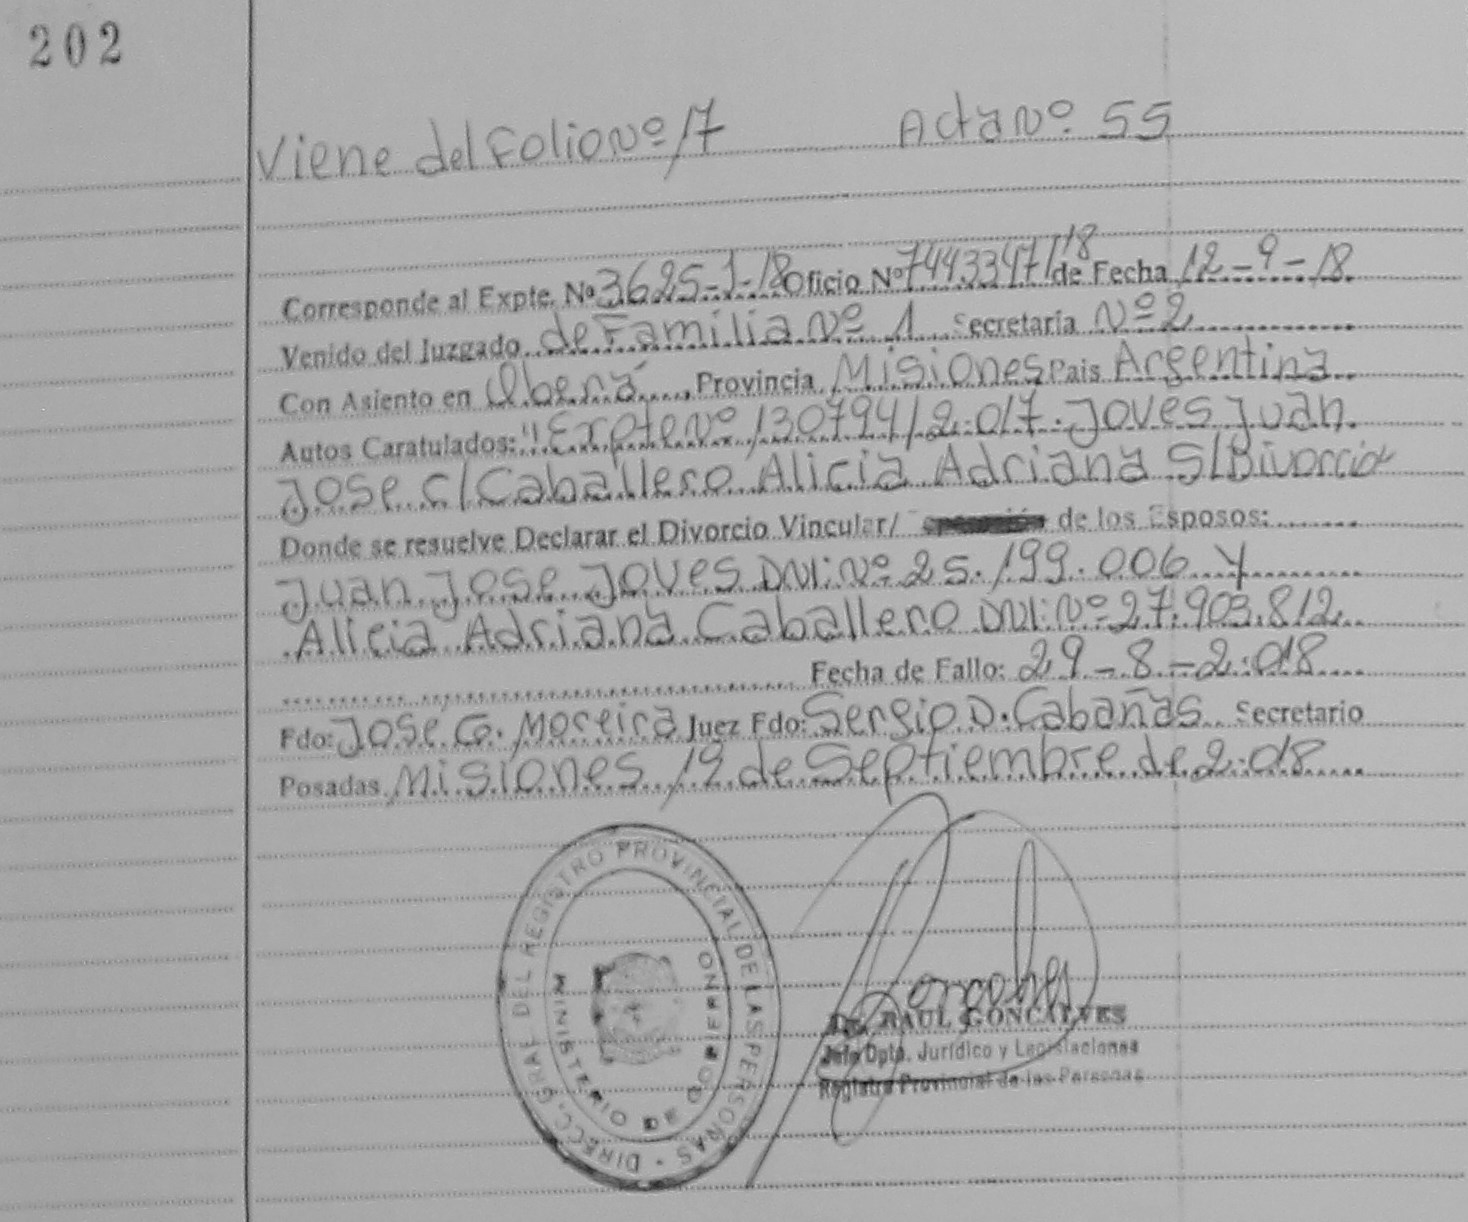 202
Viene del Folio Nº 17 Acta Nº 55
Corresponde al Expte. Nº 3625-J-18 Oficio Nº 7443347/18 de Fecha 12-9-18
Venido del Juzgado de Familia Nº 1 Secretaria Nº 2
Con Asiento en Oberá, Provincia Misiones Pais Argentina
Autos Caratulados: "Expte Nº 130794/2.017. Joves Juan
Jose c/ Caballero Alicia Adriana S/Divorcio
Donde se resuelve Declarar el Divorcio Vincular/ de los Esposos:
Juan Jose Joves DNI: Nº 25.199.006 Y
Alicia Adriana Caballero DNI: Nº 27.903.812
Fecha de Fallo: 29-8-2.018
Fdo: Jose G. Moreira Juez Fdo: Sergio D. Cabañas Secretario
Posadas Misiones 19 de Septiembre de 2.018
DIRECC. GRAL DEL REGISTRO PROVINCIAL DE LAS PERSONAS
MINISTERIO DE GOBIERNO
Dr. RAUL GONCALVES
Jefe Dpto. Jurídico y Legislaciones
Registro Provincial de las Personas